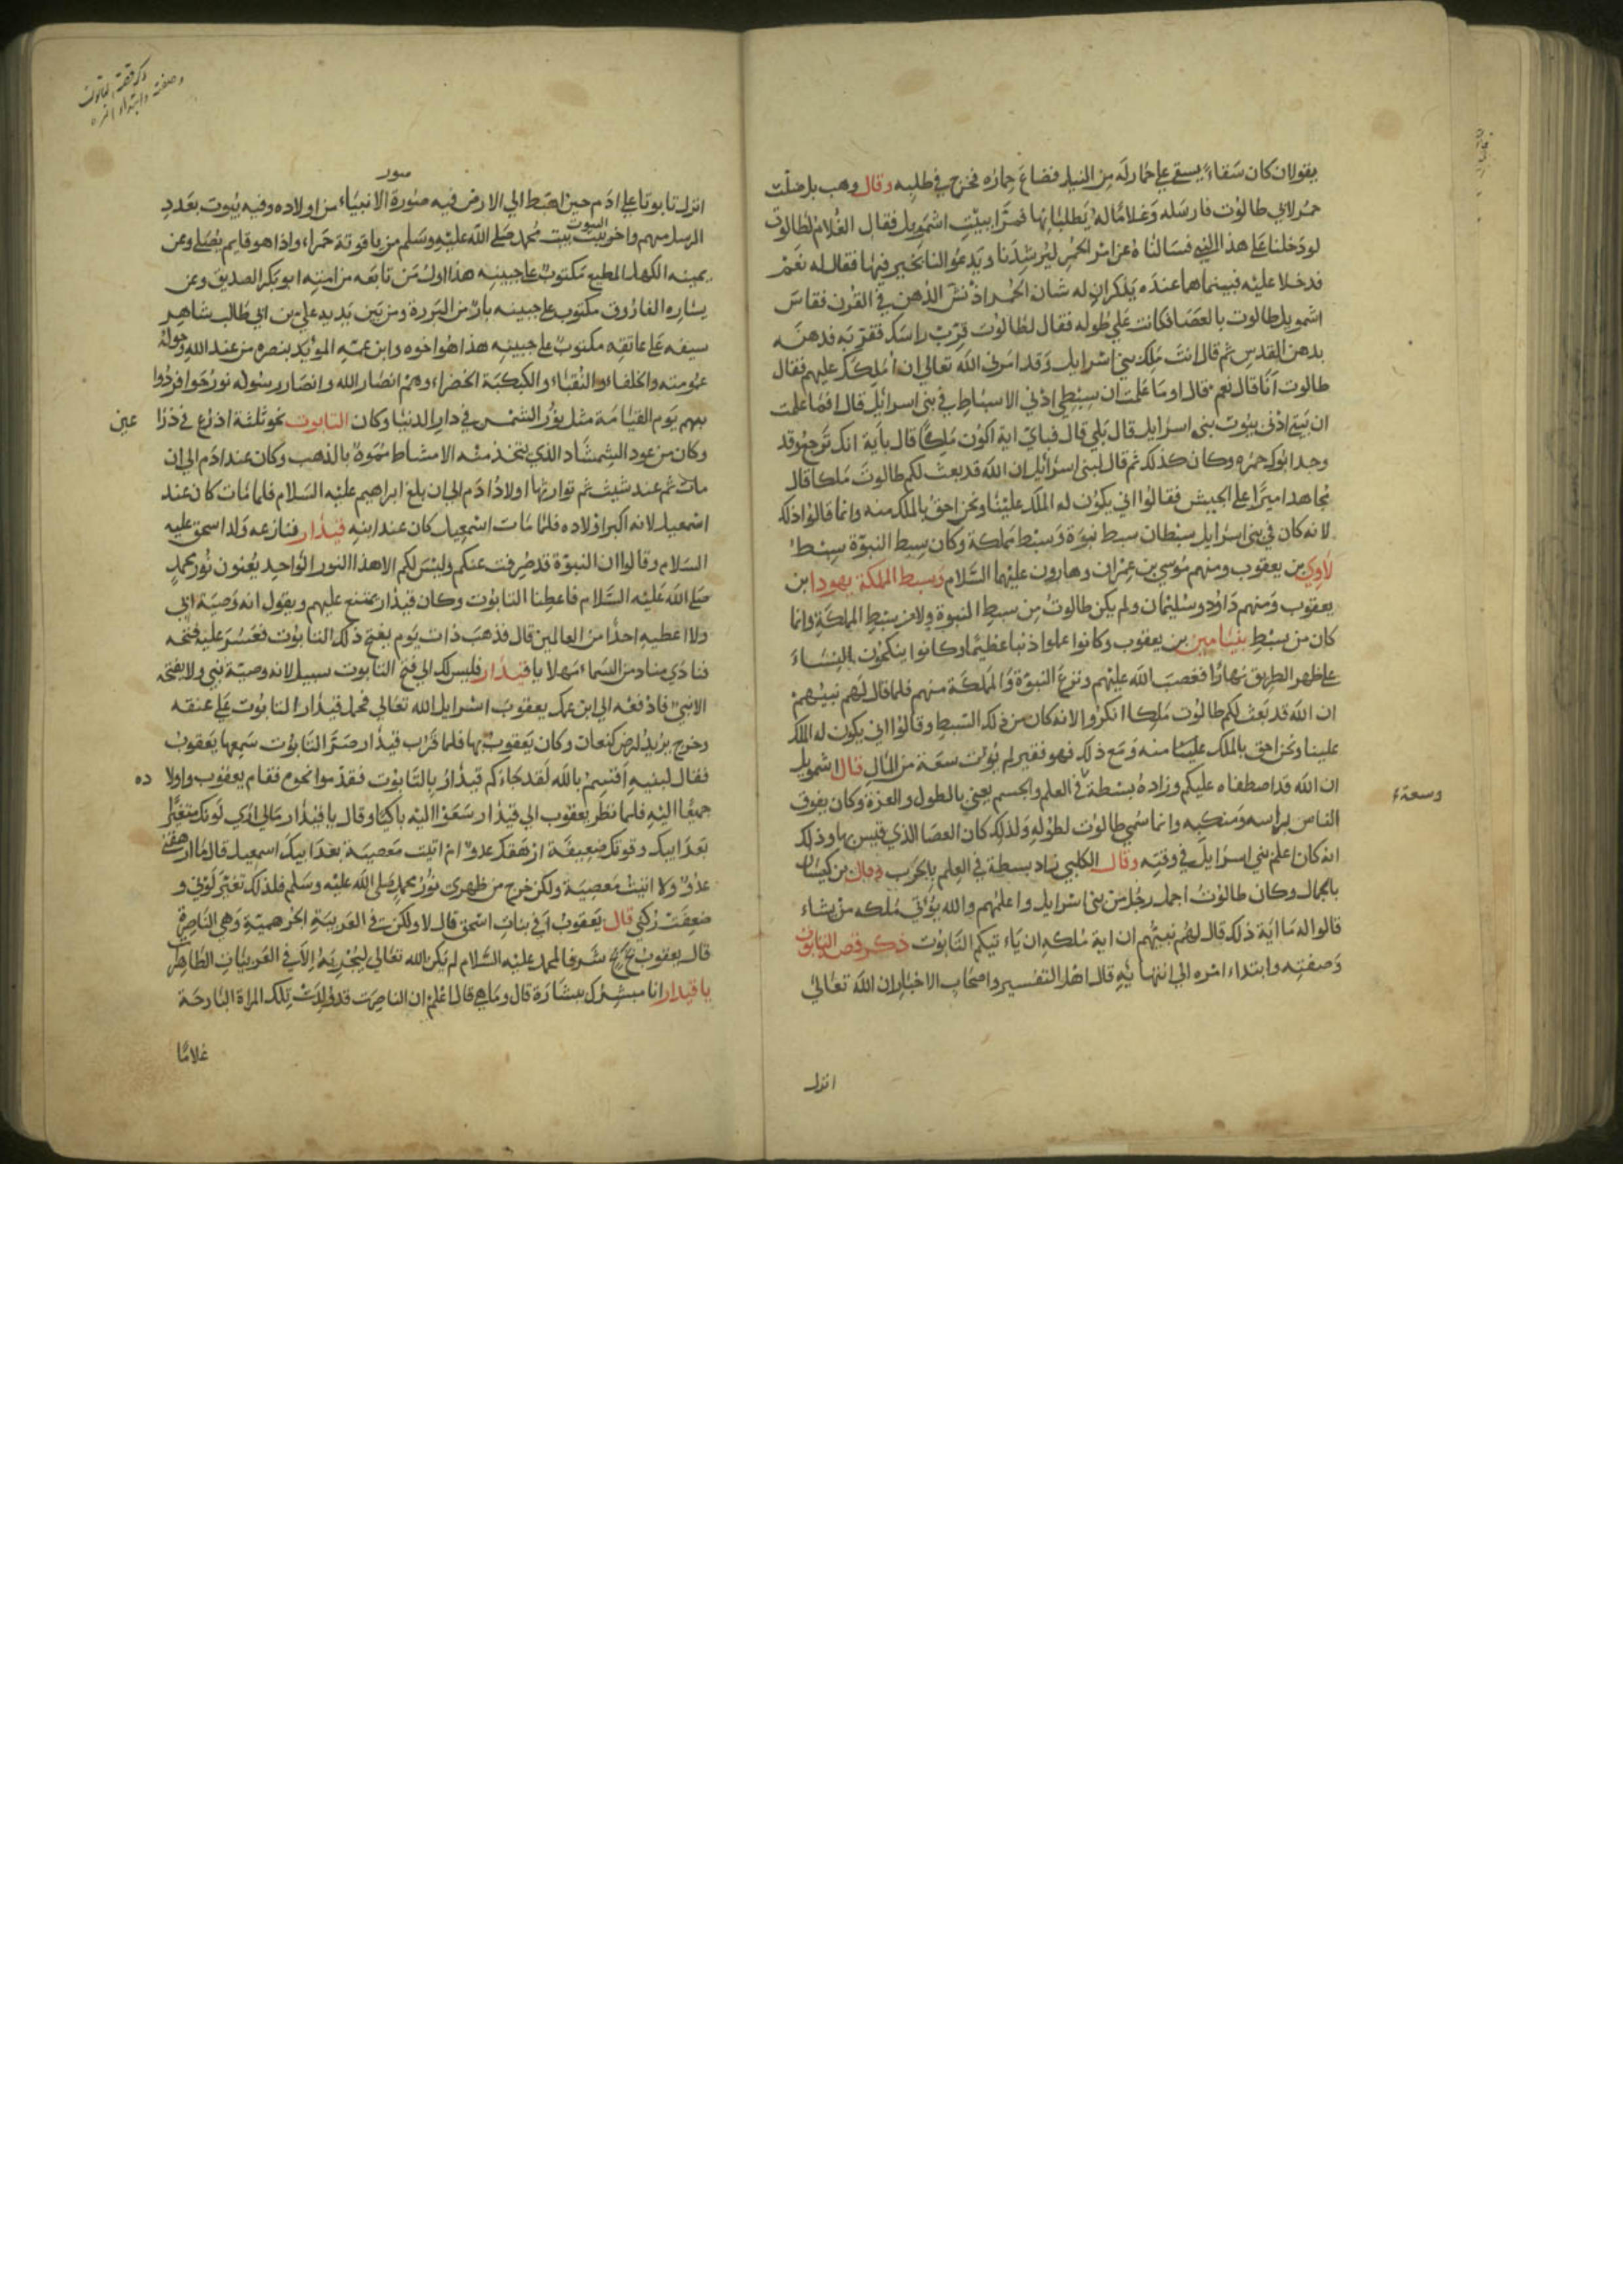 يقولان كان سقاء يسقي علي حمار له من النيل فضاع حماره فخرج في طلبه وقال وهب بل ضلت
حمر لابي طالوت فارسله وغلاما له يطلبانها فمرا ببيت اشمويل فقال الغلام لطالوت
لو دخلنا علي هذا النبي فسالناه عن امر الحمر ليرشدنا ويدعو لنا بخير فيها فقال له نعم
فدخلا عليه فبينما هما عنده يذكران له شان الحمر اذ نش الدهن في القرن فقاس
اشمويل طالوت بالعصا فكانت علي طوله فقال لطالوت قرب راسك فقربه فدهنه
بدهن القدس ثم قال انت ملك بني اسرايل وقد امرني الله تعالي ان املكك عليهم فقال
طالوت انا قال نعم قال اوما علمت ان سبطي ادني الاسباط في بني اسرائيل قال افما علمت
ان بيتي ادني بيوت بني اسرايل قال بلي قال فباي اية اكون ملكا قال باية انك ترجع وقد
وجد ابوك حمره وكان كذلك ثم قال لبني اسرائيل ان الله قد بعث لكم طالوت ملكا قال
مجاهد اميرا علي الجيش فقالوا اني يكون له الملك علينا ونحن احق بالملك منه وانما قالوا ذلك
لانه كان في بني اسرايل سبطان سبط نبوة وسبط مملكة وكان سبط النبوة سبط
لاوي بن يعقوب ومنهم موسي بن عمران وهارون عليهما السلام وسبط المملكة يهودا ابن
يعقوب ومنهم داود وسليمان ولم يكن طالوت من سبط النبوة ولا من سبط المملكة وانما
كان من سبط بنيامين بن يعقوب وكانوا عملوا ذنبا عظيما وكانوا ينكحون النساء
علي ظهر الطريق نهارا فغضب الله عليهم ونزع النبوة والمملكة منهم فلما قال لهم نبيهم
ان الله قد بعث لكم طالوت ملكا انكروا لانه كان من ذلك السبط وقالوا اني يكون له الملك
علينا ونحن احق بالملك علينا منه ومع ذلك فهو فقير لم يؤت سعة من المال قال اشمويل
ان الله قد اصطفاه عليكم وزاده بسطة في العلم والجسم يعني بالطول والعزة وكان يفوق
وسعة
الناس براسه ومنكبيه وانما سمي طالوت لطوله ولذلك كان العصا الذي قيس بها وذلك
انه كان اعلم بني اسرايل في وقته وقال الكلبي زاد بسطة في العلم بالحرب وقال بن كيسان
بالجمال وكان طالوت اجمل رجل من بني اسرايل واعلمهم والله يؤتي ملكه من يشاء
قالوا له ما اية ذلك قال لهم نبيهم ان اية ملكه ان ياء تيكم التابوت ذكر قصة التابوت
وصفته وابتداء امره الي انتهايه قال اهل التفسير واصحاب الاخبار ان الله تعالي
انزل
ذكر قصة التابوت
وصفته وابتداء امره
صور
انزل تابوتا علي ادم حين اهبط الي الارض فيه صورة الانبياء من اولاده وفيه بيوت بعدد
الرسل منهم واخر البيوت بيت محمد صلي الله عليه وسلم من ياقوتة حمراء واذا هو قايم يصلي وعن
يمينه الكهل المطيع مكتوب علي جبينه هذا اول من تابعه من امته ابو بكر الصديق وعن
يساره الفاروق مكتوب علي جبينه بار من البررة ومن بين يديه علي بن ابي طالب شاهر
سيفه علي عاتقه مكتوب علي جبينه هذا هو اخوه وابن عمه المؤيد بنصره من عند الله وحوله
عمومته والخلفاء والنقباء والكبكبة الخضراء وهم انصار الله وانصار رسوله نور حوافر دوا
بهم يوم القيامة مثل نور الشمس في دار الدنيا وكان التابوت نحو ثلثة اذرع في ذرا عين
وكان من عود الشمشاد الذي تتخذ منه الامشاط مموه بالذهب وكان عند ادم الي ان
مات ثم عند شيث ثم توارثها اولاد ادم الي ان بلغ ابراهيم عليه السلام فلما مات كان عند
اسمعيل لانه اكبر اولاده فلما مات اسمعيل كان عند ابنه قيدار فنازعه ولد اسحق عليه
السلام وقالوا ان النبوة قد صرفت عنكم وليس لكم الا هذا النور الواحد يعنون نور محمد
صلي الله عليه السلام فاعطنا التابوت وكان قيدار يمتنع عليهم ويقول انه وصية ابي
ولا اعطيه احدا من العالمين قال فذهب ذات يوم يفتح ذلك التابوت فعسر عليه فتحه
فنادي مناد من السماء مهلا يا قيدار فليس لك الي فتح التابوت سبيل لانه وصية نبي ولا يفتحه
الا نبي فادفعه الي ابن عمك يعقوب اسرايل الله تعالي فحمل قيدار التابوت علي عنقه
وخرج يريد ارض كنعان وكان يعقوب بها فلما قرب قيدار صر التابوت سمعها يعقوب
فقال لبنيه اقسم بالله لقد جاءكم قيدار بالتابوت فقدموا نحوه فقام يعقوب واولا ده
جميعا اليه فلما نظر يعقوب الي قيدار سعوا اليه باكيا وقال يا قيدار مالي اري لونك متغيرا
بعد ابيك وقوتك ضعيفة ارهقك عدو ام اتيت معصية بعد ابيك اسمعيل قال ما ارهقني
عدو ولا اتيت معصية ولكن خرج من ظهري نور محمد صلي الله عليه وسلم فلذلك تغير لوني و
ضعفت ركني قال يعقوب افي بنات اسحق قال لا ولكن في العربية الجرهمية وهي الغاضرة
قال يعقوب بخ بخ شرفا لمحمد عليه السلام لم يكن الله تعالي ليجريه الا في العربيات الطاهرات
يا قيدار انا مبشرك ببشارة قال وما هي قال اعلم ان الغاضرت قد ولدت تلك المراة البارحة
غلاما